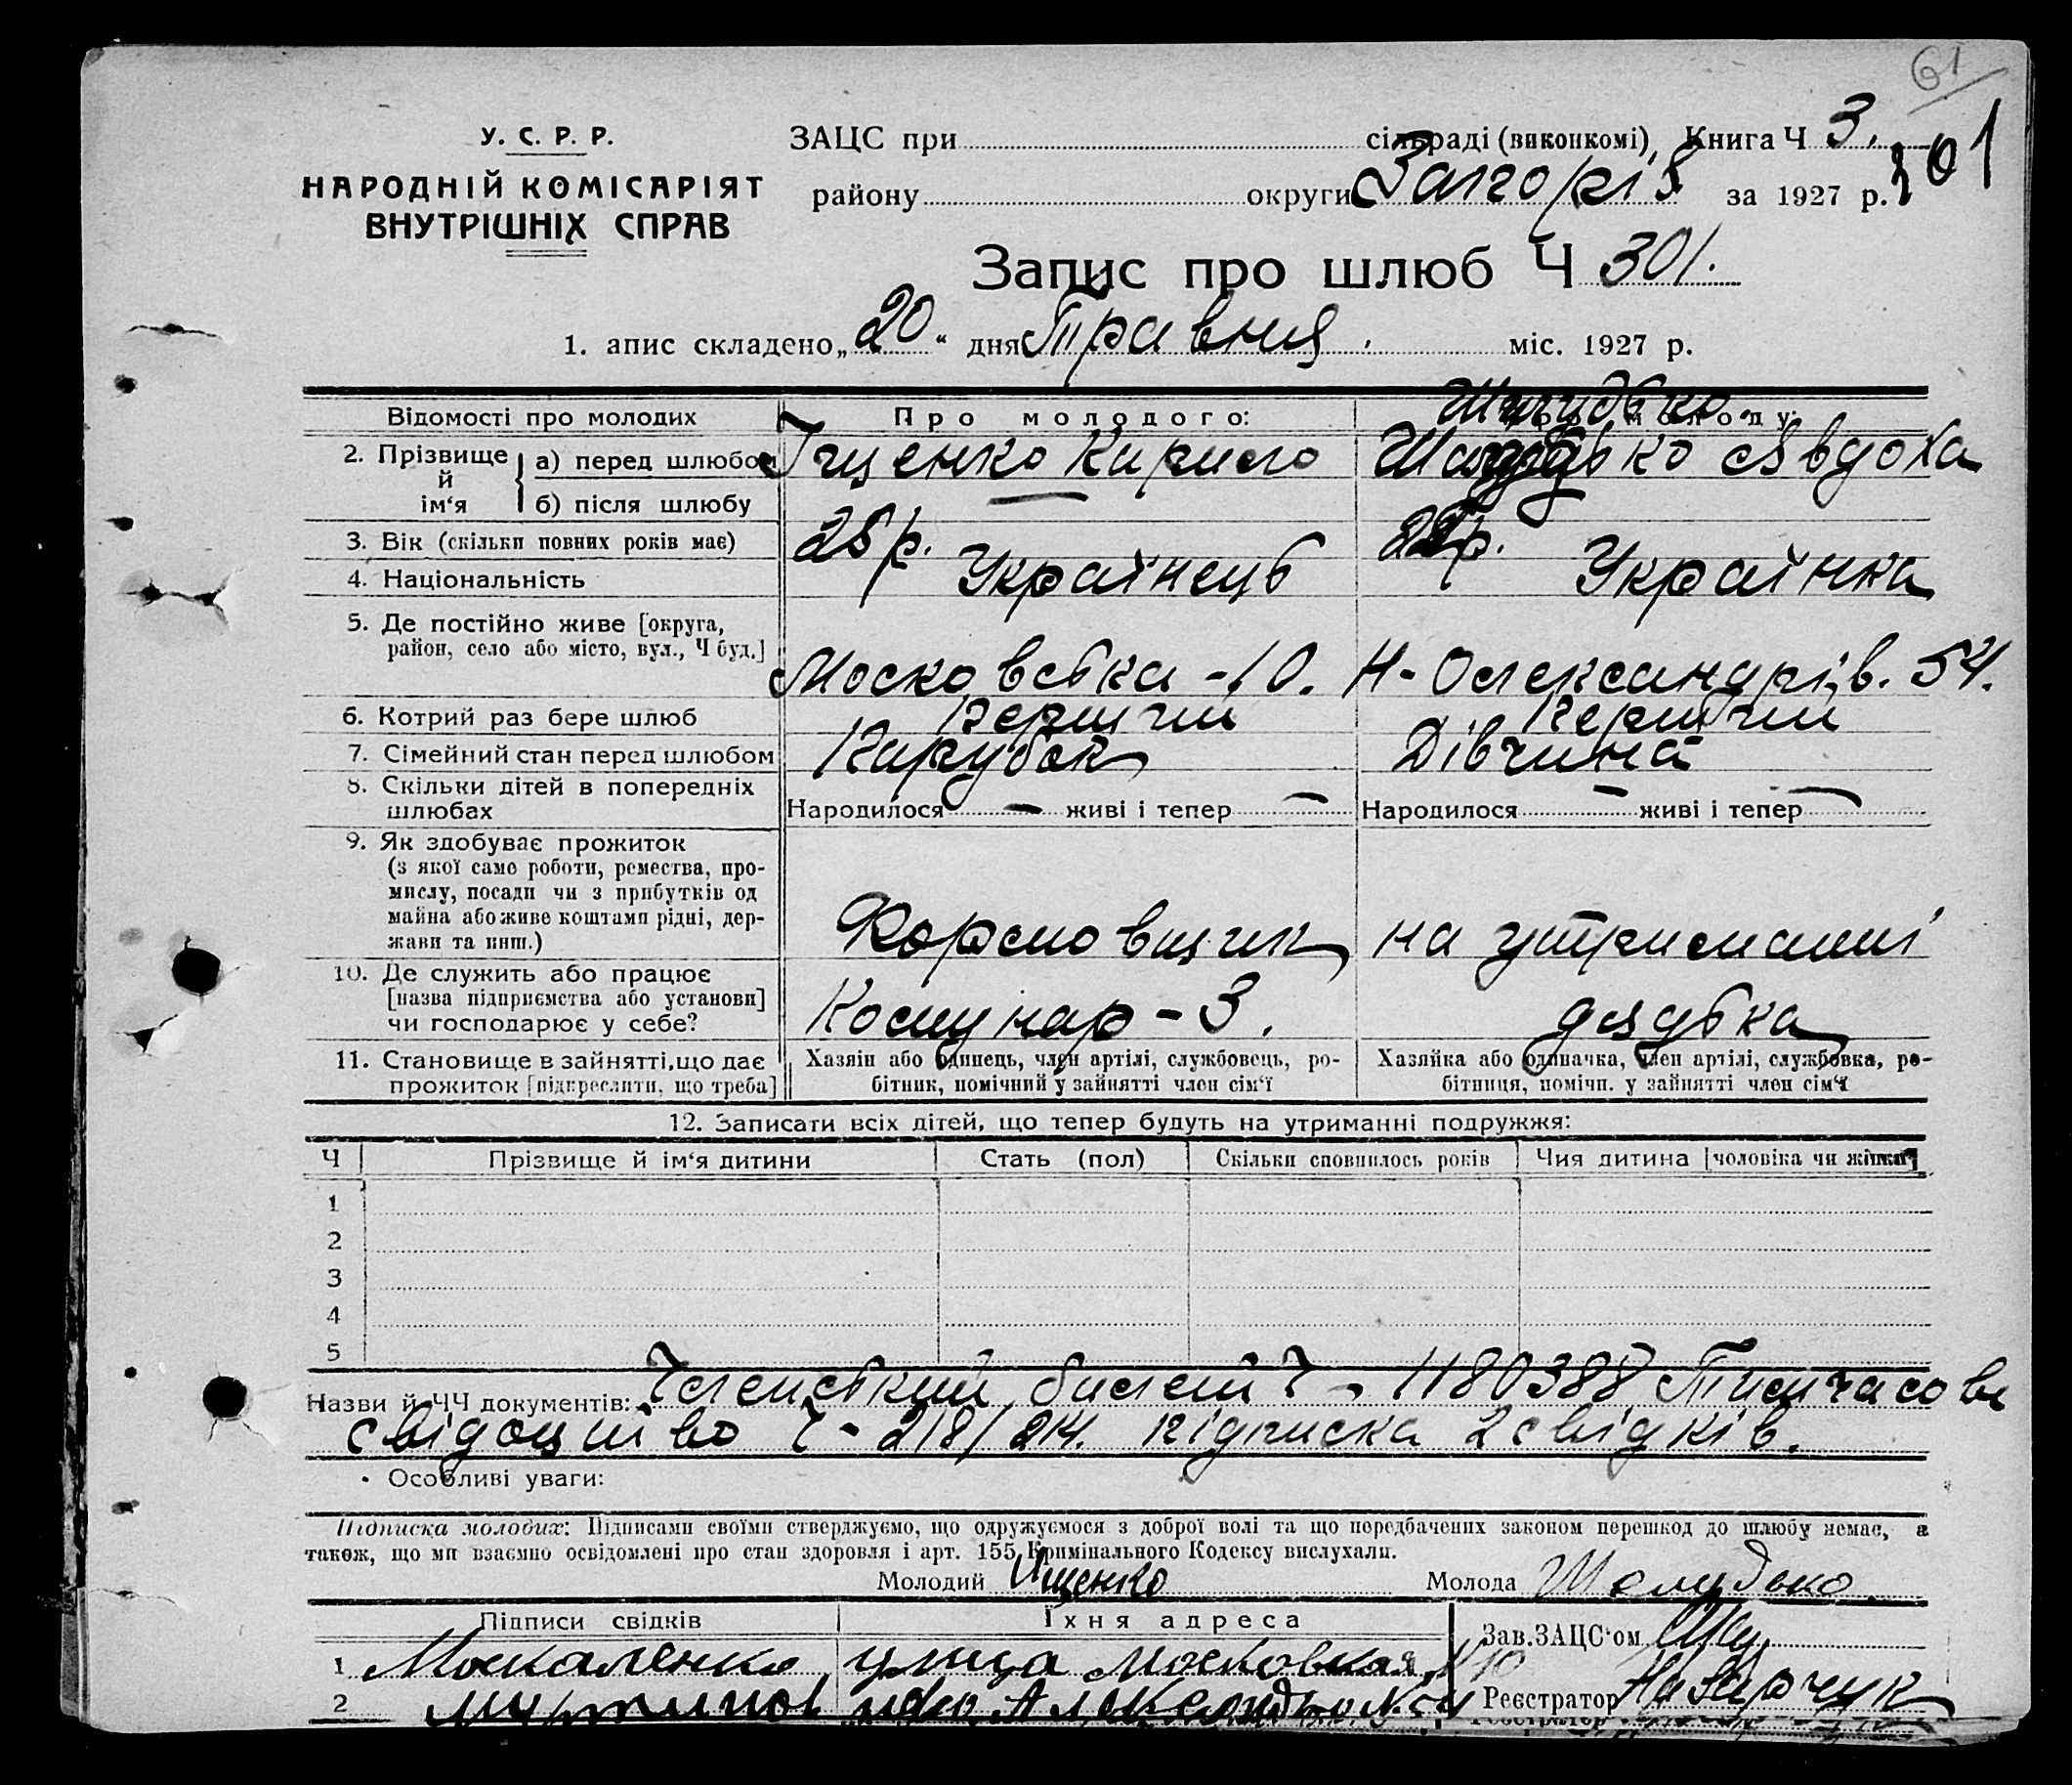 61
У. С. Р. Р.
НАРОДНІЙ КОМІСАРІЯТ
ВНУТРІШНІХ СПРАВ
ЗАЦС при сільраді (виконкомі) Книга Ч 3.
району округи за 1927 р. 301
Запис про шлюб Ч 301.
1. апис складено „20“ дня Травня міс. 1927 р.
Відомості про молодих
Про молодого:
2. Прізвище й ім‘я
а) перед шлюбом
Іщенко Кирило
Явдоха
б) після шлюбу
3. Вік (скільки повних років має)
25 р.
4. Національність
Українець
Українка
5. Де постійно живе [округа, район, село або місто, вул., Ч буд.]
Московська - 10.
Н-Олександрів. 54.
6. Котрий раз бере шлюб
Перший
Перший
7. Сімейний стан перед шлюбом
Парубок
Дівчина
8. Скільки дітей в попередніх шлюбах
Народилося — живі і тепер —
Народилося — живі і тепер —
9. Як здобуває прожиток
(з якої само роботи, ремества, про-
мислу, посади чи з прибутків од
майна або живе коштами рідні, дер-
жави та инш.)
Формовщик
на утриманні
10. Де служить або працює
[назва підприємства або установи]
чи господарює у себе?
Комунар - 3.
дядька
11. Становище в зайнятті, що дає
прожиток [підкреслити, що треба]
Хазяїн або одинець, член артілі, службовець, ро-
бітник, помічний у зайнятті член сім‘ї
Хазяйка або одиначка, член артілі, службовка, ро-
бітниця, помічн. у зайнятті член сім‘ї
12. Записати всіх дітей, що тепер будуть на утриманні подружжя:
Ч Прізвище й ім‘я дитини Стать (пол) Скільки сповнилось років Чия дитина [чоловіка чи жінки]
1
2
3
4
5
Назви й ЧЧ документів: Членський билет Ч - 1180388 Тимчасове
свідоцтво Ч - 218/214. Підписка 2 свідків.
Особливі уваги:
Підписка молодих: Підписами своїми стверджуємо, що одружуємося з доброї волі та що передбачених законом перешкод до шлюбу немає, а
також, що ми взаємно освідомлені про стан здоровля і арт. 155 Кримінального Кодексу вислухали.
Молодий Ищенко Молода Шолудько
Підписи свідків Їхня адреса Зав. ЗАЦС‘ом
1 Москаленко улица Московская № 10
2 Реєстратор